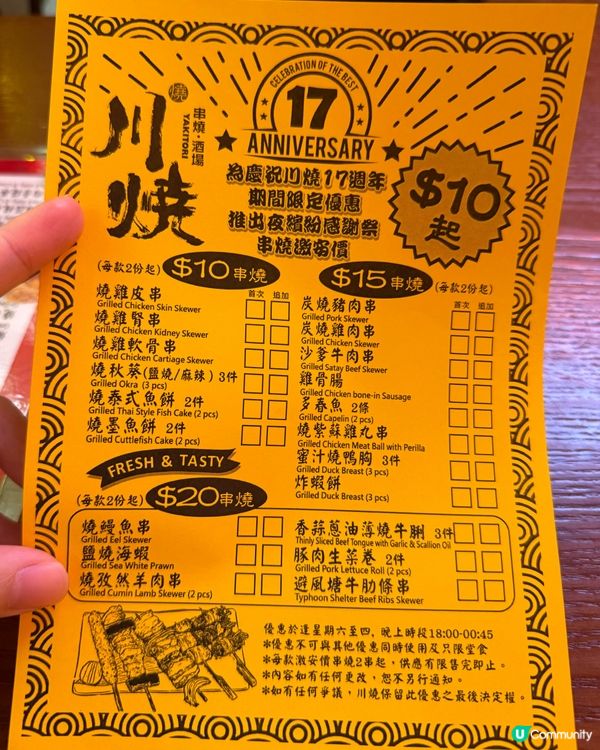 川燒
燒
串燒·酒場
YAKITORI
CELEBRATION OF THE BEST
17
ANNIVERSARY
為慶祝川燒17週年
期間限定優惠
推出夜繽紛感謝祭
串燒激安價
$10
起
(每款2份起) $10串燒
首次 追加
燒雞皮串
Grilled Chicken Skin Skewer
燒雞腎串
Grilled Chicken Kidney Skewer
燒雞軟骨串
Grilled Chicken Cartiage Skewer
燒秋葵(鹽燒/麻辣) 3件
Grilled Okra (3 pcs)
燒泰式魚餅 2件
Grilled Thai Style Fish Cake (2 pcs)
燒墨魚餅 2件
Grilled Cuttlefish Cake (2 pcs)
$15串燒 (每款2份起)
首次 追加
炭燒豬肉串
Grilled Pork Skewer
炭燒雞肉串
Grilled Chicken Skewer
沙爹牛肉串
Grilled Satay Beef Skewer
雞骨腸
Grilled Chicken bone-in Sausage
多春魚 2條
Grilled Capelin (2 pcs)
燒紫蘇雞丸串
Grilled Chicken Meat Ball with Perilla
蜜汁燒鴨胸 3件
Grilled Duck Breast (3 pcs)
炸蝦餅
Grilled Duck Breast (3 pcs)
FRESH & TASTY
(每款2份起) $20串燒
燒鰻魚串
Grilled Eel Skewer
鹽燒海蝦
Grilled Sea White Prawn
燒孜然羊肉串
Grilled Cumin Lamb Skewer (2 pcs)
香蒜蔥油薄燒牛脷 3件
Thinly Sliced Beef Tongue with Garlic & Scallion Oil
豚肉生菜卷 2件
Grilled Pork Lettuce Roll (2 pcs)
避風塘牛肋條串
Typhoon Shelter Beef Ribs Skewer
優惠於逢星期六至四, 晚上時段18:00-00:45
*優惠不可與其他優惠同時使用及只限堂食
*每款激安價串燒2串起，供應有限售完即止。
*內容如有任何更改，恕不另行通知。
*如有任何爭議，川燒保留此優惠之最後決定權。
U Community